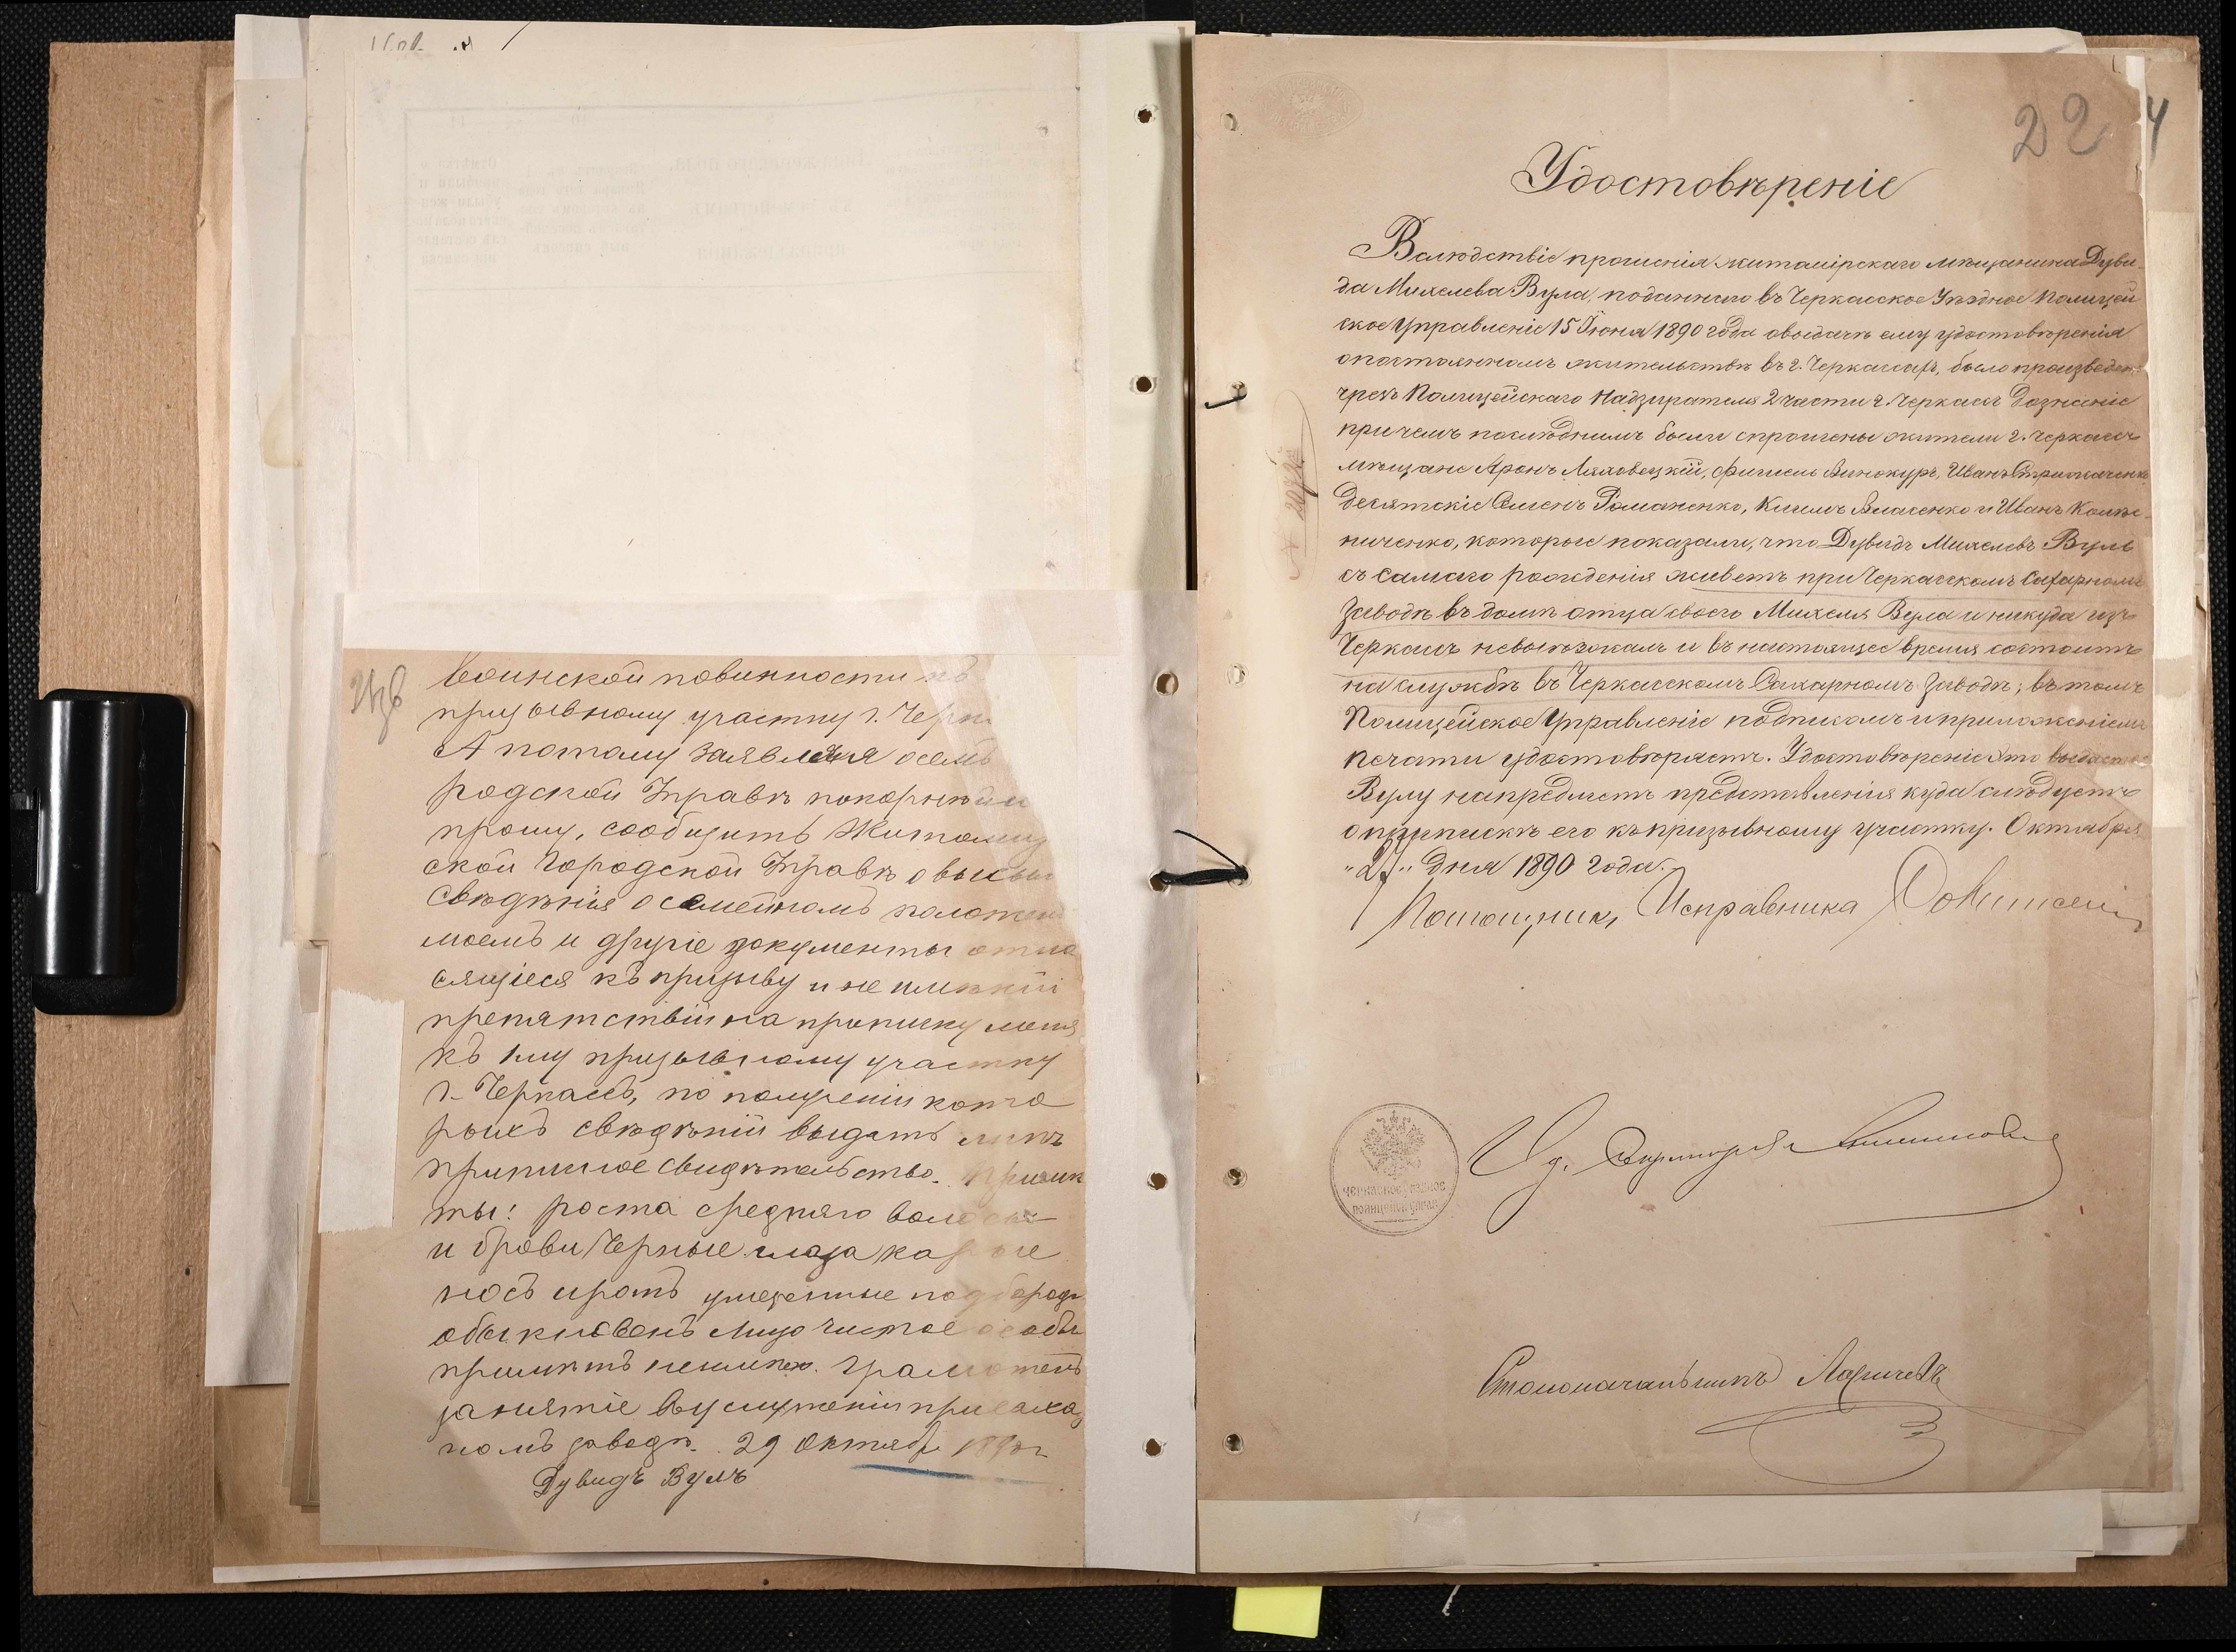 воинской повинности къ
призывному участку г. Черк
А потому заявляя о семъ
родской Управѣ покорнѣйше
прошу, сообщить Житомир
ской Городской Управѣ о высыл
свѣдѣнія о семейномъ положеніи
моемъ и другіе документы отно
сящіеся къ призыву и не имѣній
препятствій на приписку меня
къ 1му призывному участку
г. Черкассъ, по полученіи кото
рыхъ свѣдѣній выдать мнѣ
приписное свидѣтельство. Примѣ
ты: роста средняго волосы
и брови черные глаза каріе
носъ и ротъ умеренные подбородк
обыкновенъ лицо чистое особы
примѣтъ неимѣю. Грамотенъ
занятіе въ услуженіи при сахар
номъ заводѣ. 29 Октября 1890 г
Дувидъ Вулъ
22
4
Удостовѣреніе
Вслѣдствіе прошенія житомірскаго мѣщанина Дуви
да Михелева Вула, поданнаго въ Черкасское Уѣздное Полицей
ское Управленіе 15 Іюня 1890 года о выдачѣ ему удостовѣренія
о постоянномъ жительствѣ въ г. Черкассахъ, было произведено
чрезъ Полицейскаго Надзирателя 2 части г. Черкассъ Дознаніе
при чемъ послѣднимъ были спрошены жители г. Черкассъ
мѣщане Аронъ Ляховецкій, Фишель Винокуръ, Иванъ
Десятскіе Семенъ Романенко, Власенко и Иванъ Колѣс
ниченко, которые показали, что Дувидъ Михелевъ Вулъ
съ самаго рожденія живетъ при Черкасскомъ Сахарномъ
Заводѣ въ домѣ отца своего Михеля Вула и никуда изъ
Черкассъ невыѣзжалъ и въ настоящее время состоитъ
на службѣ въ Черкасскомъ Сахарномъ Заводѣ; въ томъ
Полицейское Управленіе подписомъ и приложеніемъ
печати удостовѣряетъ. Удостовѣреніе это выдается
Вулу на предметъ представленія куда слѣдуетъ
о припискѣ его къ призывному участку. Октября
"27" дня 1890 года.
Помощникъ Исправника
Столоначальникъ